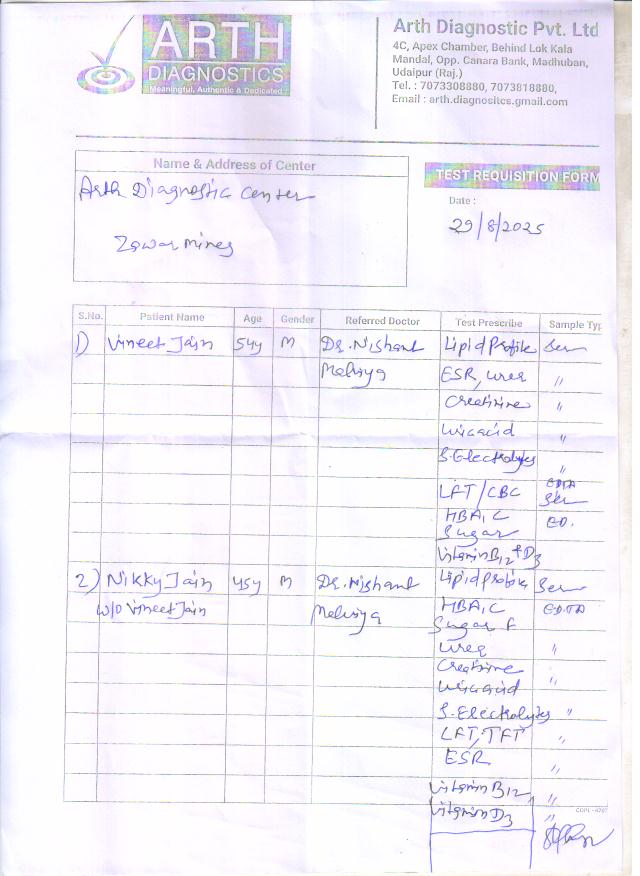 ARTH
DIAGNOSTICS
Meaningful, Authentic & Dedicated
Arth Diagnostic Pvt. Ltd
4C, Apex Chamber, Behind Lok Kala
Mandal, Opp. Canara Bank, Madhuban,
Udaipur (Raj.)
Tel. : 7073308880, 7073818880,
Email : arth.diagnositcs.gmail.com
Name & Address of Center
TEST REQUISITION FORM
Arth Diagnostic Center
Zawar mines
Date :
29/8/2025
S.No. Patient Name Age Gender Referred Doctor Test Prescribe Sample Typ
1) Vineet Jain 54y M Dr. Nishant Lipid Profile Ser
ESR, urea "
Creatinine "
Uric acid "
S. Electrolytes "
LFT/CBC EDTA Ser
HBA1C ED.
Sugar
Vitamin B12 + D3
2) Nikky Jain 45y M Dr. Nishant Lipid Profile Ser
W/O Vineet Jain HBA1C EDTA
Sugar F
Urea "
Creatinine "
Uric acid
S. Electrolytes "
LFT, TFT "
ESR "
Vitamin B12 "
Vitamin D3 "